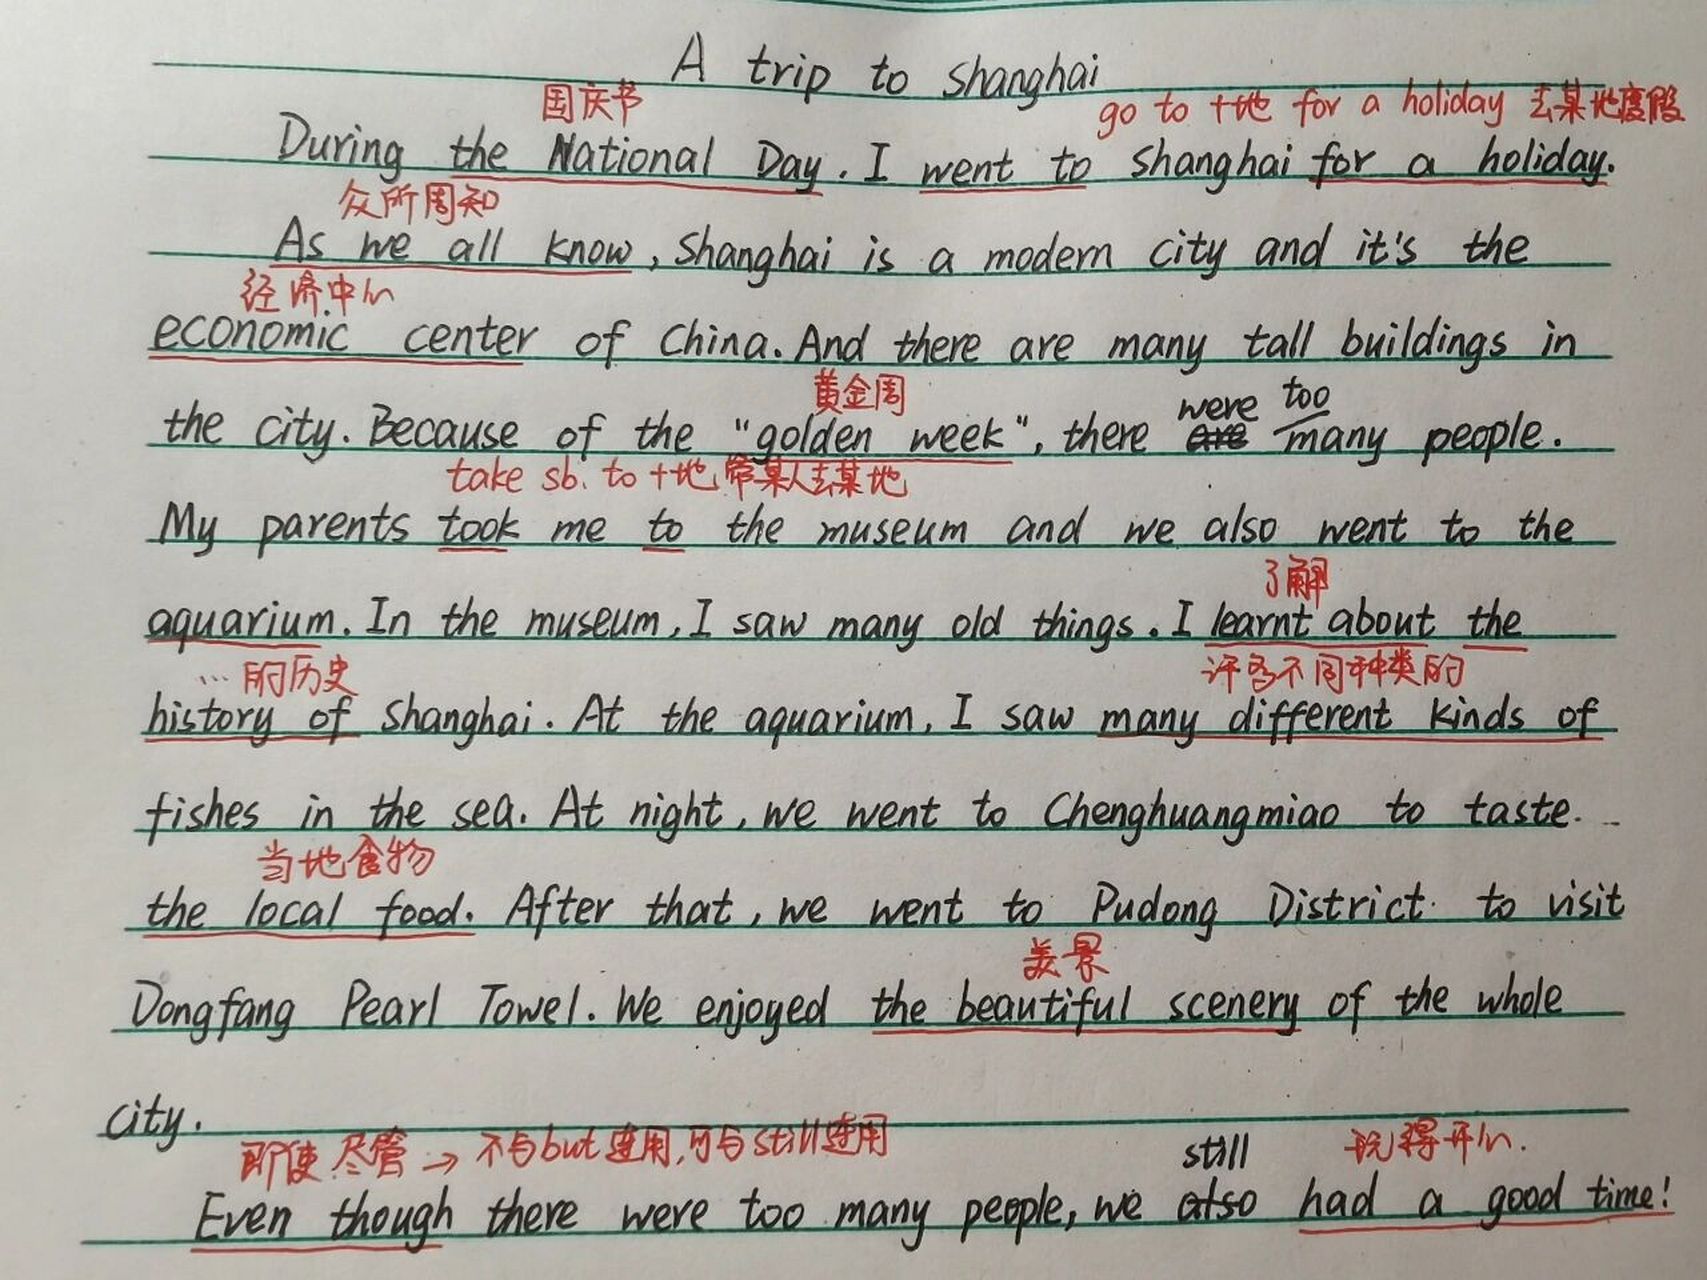 A trip to Shanghai
国庆节 go to +地 for a holiday 去某地度假
During the National Day. I went to Shanghai for a holiday.
众所周知
As we all know, Shanghai is a modern city and it's the
经济中心
economic center of China. And there are many tall buildings in
黄金周 were too
the city. Because of the "golden week", there are many people.
take sb. to +地 带某人去某地
My parents took me to the museum and we also went to the
了解
aquarium. In the museum, I saw many old things. I learnt about the
...的历史 许多不同种类的
history of Shanghai. At the aquarium, I saw many different kinds of
fishes in the sea. At night, we went to Chenghuangmiao to taste.
当地食物
the local food. After that, we went to Pudong District to visit
美景
Dongfang Pearl Towel. We enjoyed the beautiful scenery of the whole
city.
即使 尽管 → 不与but连用,可与still连用 still 玩得开心.
Even though there were too many people, we also had a good time!